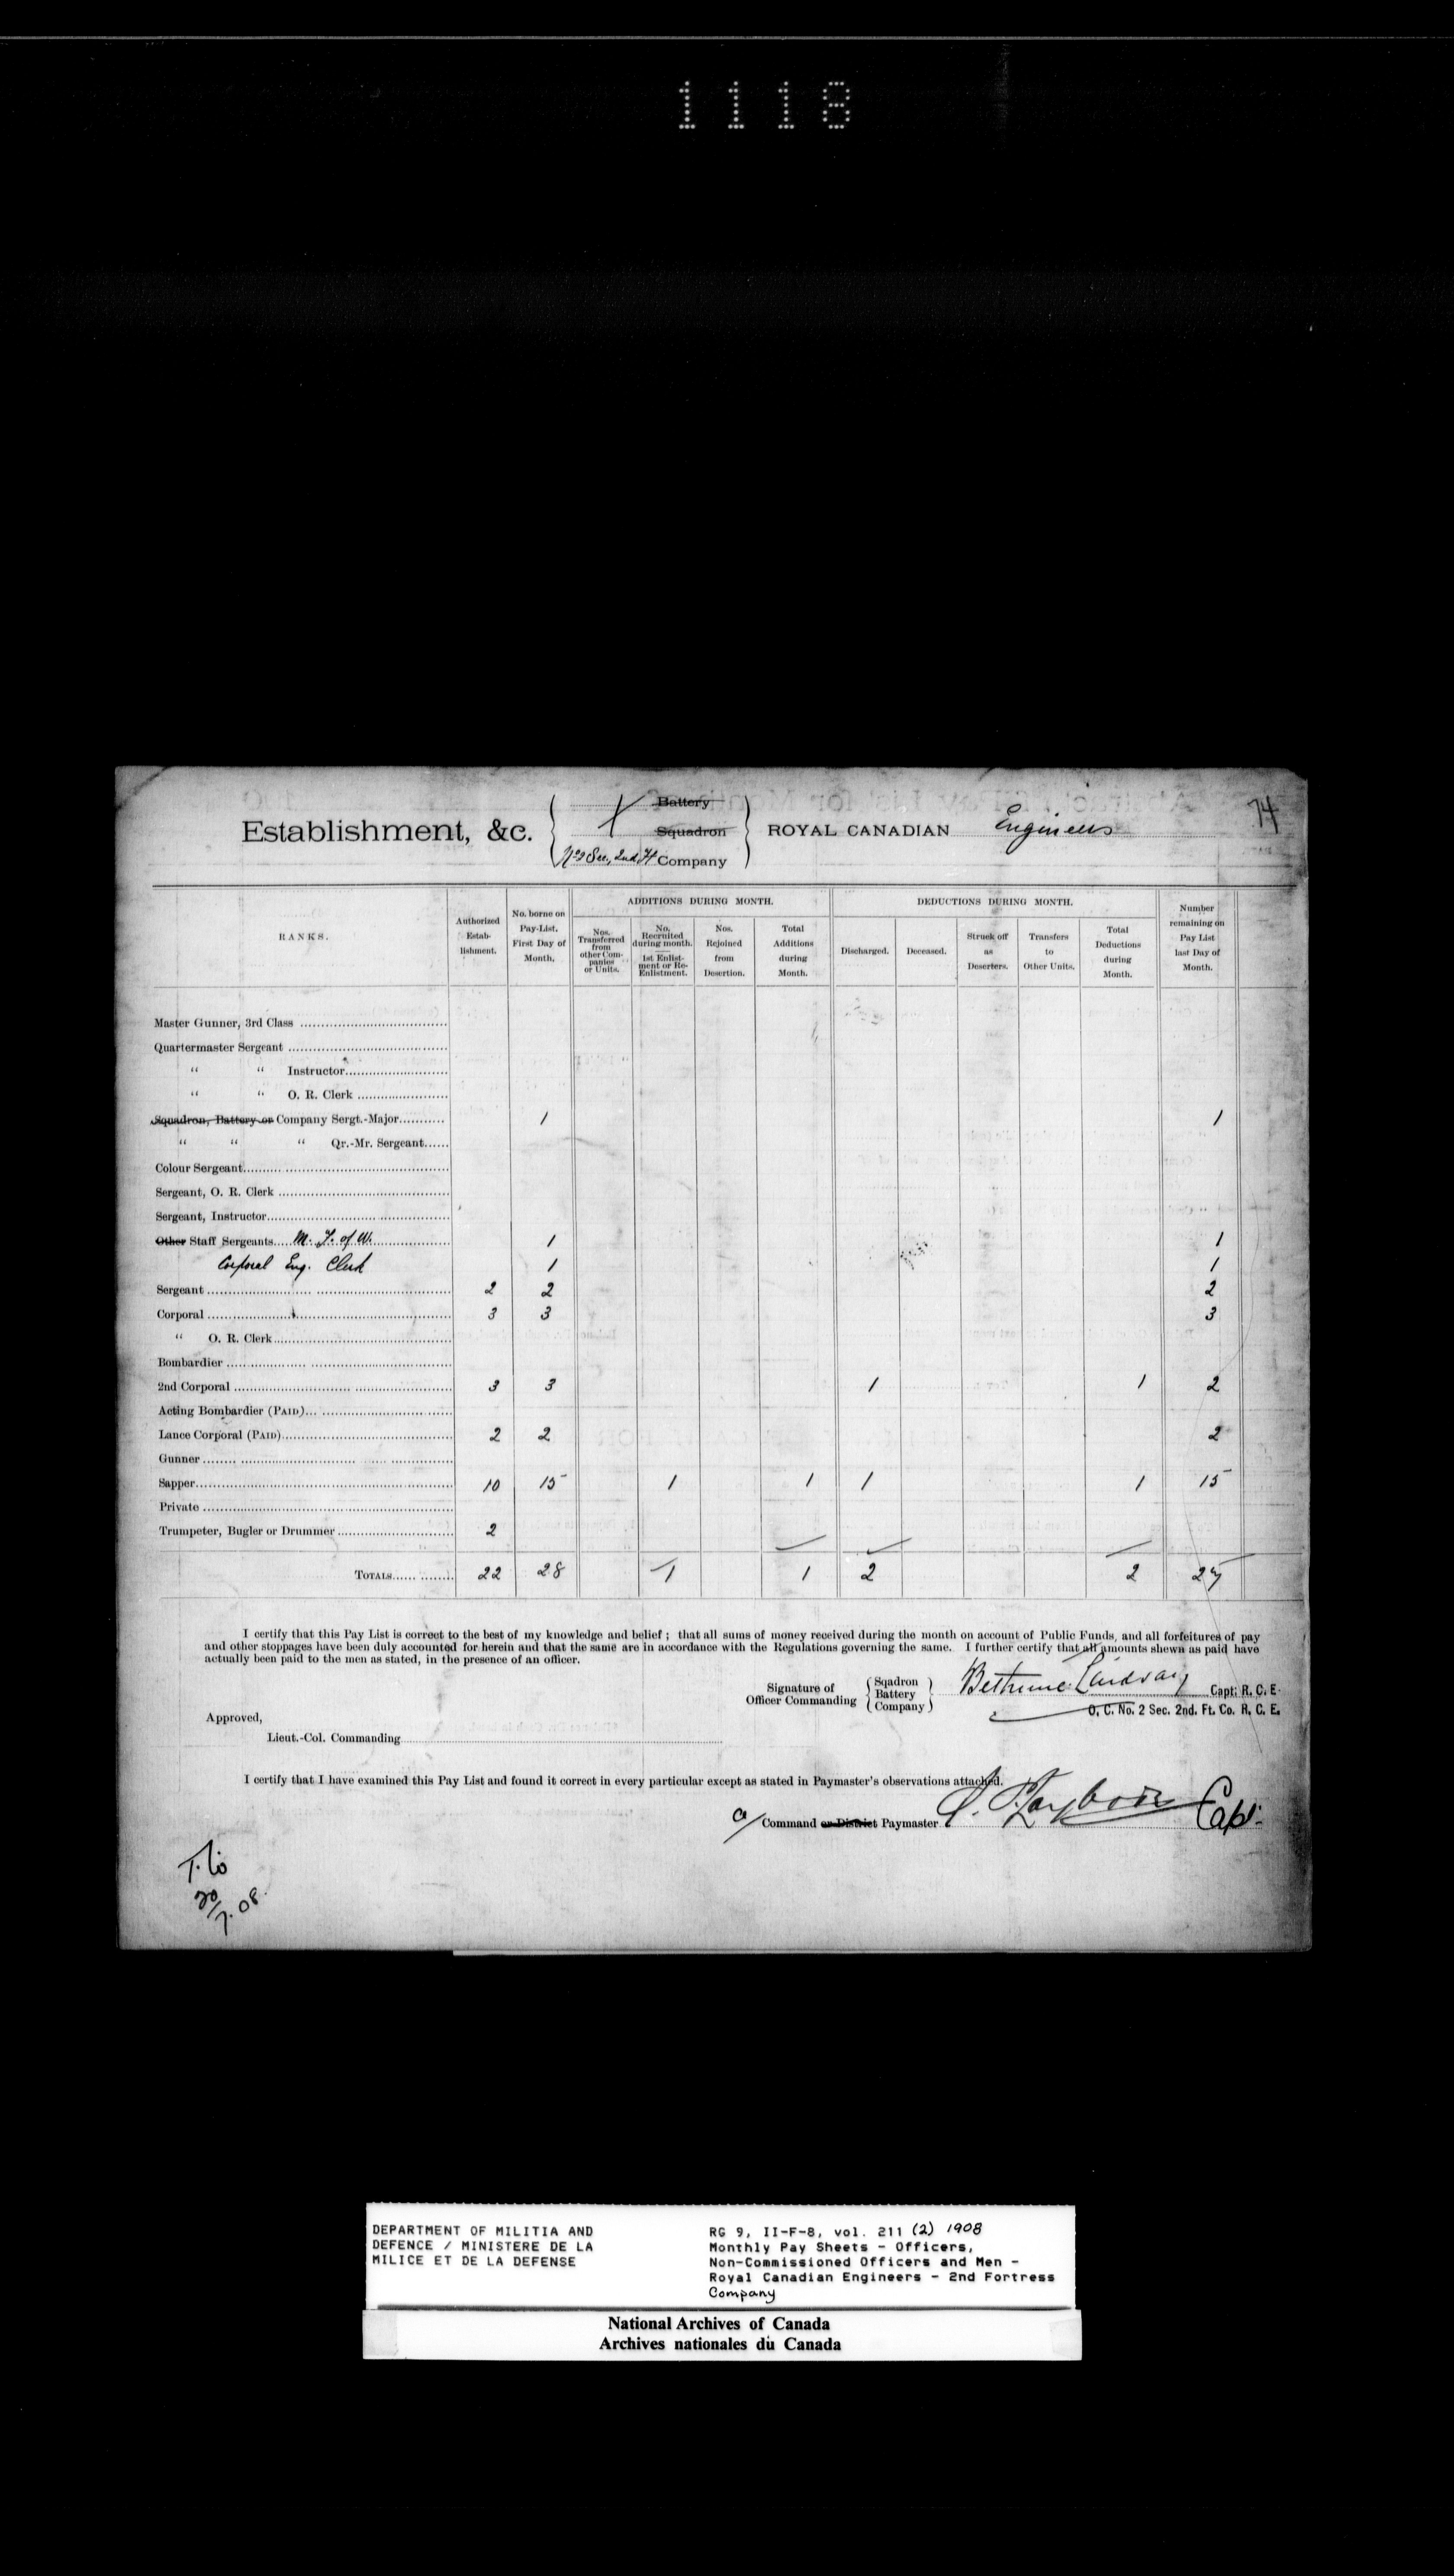 1118
74
Establishment, &c.
Battery
Squadron
No 2 Sec., 2nd Ft Company
ROYAL CANADIAN Engineers
RANKS.
Authorized Estab-lishment.
No. borne on Pay-List, First Day of Month.
ADDITIONS DURING MONTH.
Nos. Transferred from other Companies or Units.
No. Recruited during month. 1st Enlistment or Re-Enlistment.
Nos. Rejoined from Desertion.
Total Additions during Month.
DEDUCTIONS DURING MONTH.
Discharged.
Deceased.
Struck off as Deserters.
Transfers to Other Units.
Total Deductions during Month.
Number remaining on Pay List last Day of Month.
Master Gunner, 3rd Class
Quartermaster Sergeant
" " Instructor
" " O. R. Clerk
Squadron, Battery or Company Sergt.-Major 1 1
" " " Qr.-Mr. Sergeant
Colour Sergeant
Sergeant, O. R. Clerk
Sergeant, Instructor
Other Staff Sergeants M. F. of W. 1 1
Corporal Eng. Clerk 1 1
Sergeant 2 2 2
Corporal 3 3 3
" O. R. Clerk
Bombardier
2nd Corporal 3 3 1 1 2
Acting Bombardier (PAID)
Lance Corporal (PAID) 2 2 2
Gunner
Sapper 10 15 1 1 1 1 15
Private
Trumpeter, Bugler or Drummer 2
TOTALS 22 28 1 1 2 2 27
I certify that this Pay List is correct to the best of my knowledge and belief; that all sums of money received during the month on account of Public Funds, and all forfeitures of pay
and other stoppages have been duly accounted for herein and that the same are in accordance with the Regulations governing the same. I further certify that all amounts shewn as paid have
actually been paid to the men as stated, in the presence of an officer.
Signature of Officer Commanding
Sqadron
Battery
Company
Bethune Lindsay Capt: R. C. E.
O. C. No. 2 Sec. 2nd. Ft. Co. R. C. E.
Approved,
Lieut.-Col. Commanding
I certify that I have examined this Pay List and found it correct in every particular except as stated in Paymaster's observations attached.
a/ Command or District Paymaster Capt.
20/7.08.
DEPARTMENT OF MILITIA AND
DEFENCE / MINISTERE DE LA
MILICE ET DE LA DEFENSE
RG 9, II-F-8, vol. 211 (2) 1908
Monthly Pay Sheets - Officers,
Non-Commissioned Officers and Men -
Royal Canadian Engineers - 2nd Fortress
Company
National Archives of Canada
Archives nationales du Canada